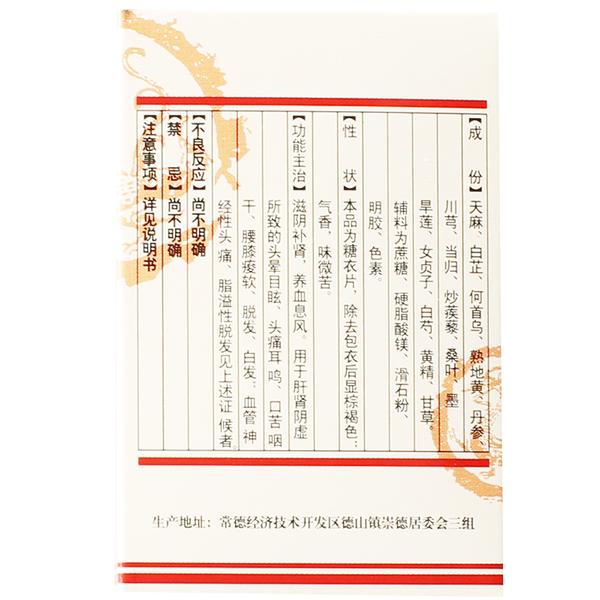 【成份】天麻、白芷、何首乌、熟地黄、丹参、
川芎、当归、炒蒺藜、桑叶、墨
旱莲、女贞子、白芍、黄精、甘草。
辅料为蔗糖、硬脂酸镁、滑石粉、
明胶、色素。
【性状】本品为糖衣片，除去包衣后显棕褐色；
气香，味微苦。
【功能主治】滋阴补肾，养血息风。用于肝肾阴虚
所致的头晕目眩、头痛耳鸣、口苦咽
干、腰膝痠软、脱发、白发；血管神
经性头痛、脂溢性脱发见上述证候者。
【不良反应】尚不明确
【禁忌】尚不明确
【注意事项】详见说明书
生产地址：常德经济技术开发区德山镇崇德居委会三组